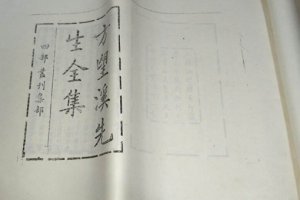 方望溪先
生全集
四部叢刊集部